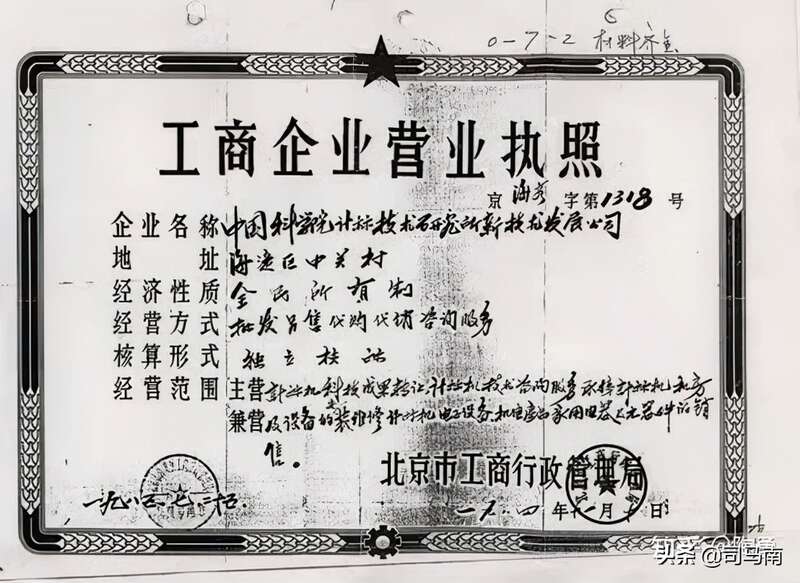 0-7-2 材料齐全
工商企业营业执照
京 海 字第1318号
企业名称 中国科学院计标技术研究所新技术发展公司
地址 海淀区中关村
经济性质 全民所有制
经营方式 批发另售代购代销咨询服务
核算形式 独立核祘
经营范围 主营 计祘机科技成果转让、计祘机技术咨询服务 承 计祘机机房
兼营 及设备的装维修计祘机电子设备 家用电器及元器件的销
售。
北京市工商行政管理局
一九八四年十一月 日
知乎
头条 @司马南